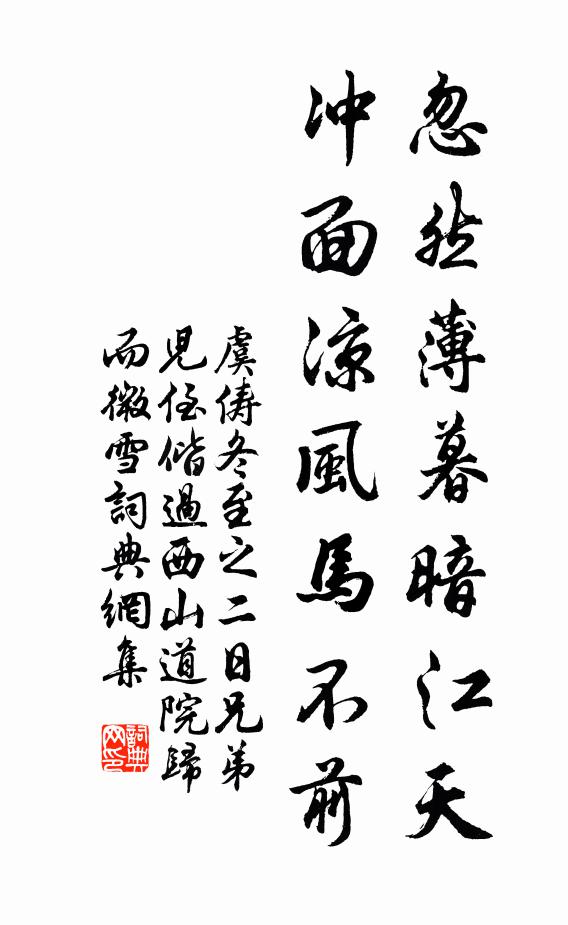 忽然薄暮暗江天
冲面凉風馬不前
虞俦冬至之二日兄弟
児侄偕過西山道院歸
而微雪詞典網集
詞典
网印